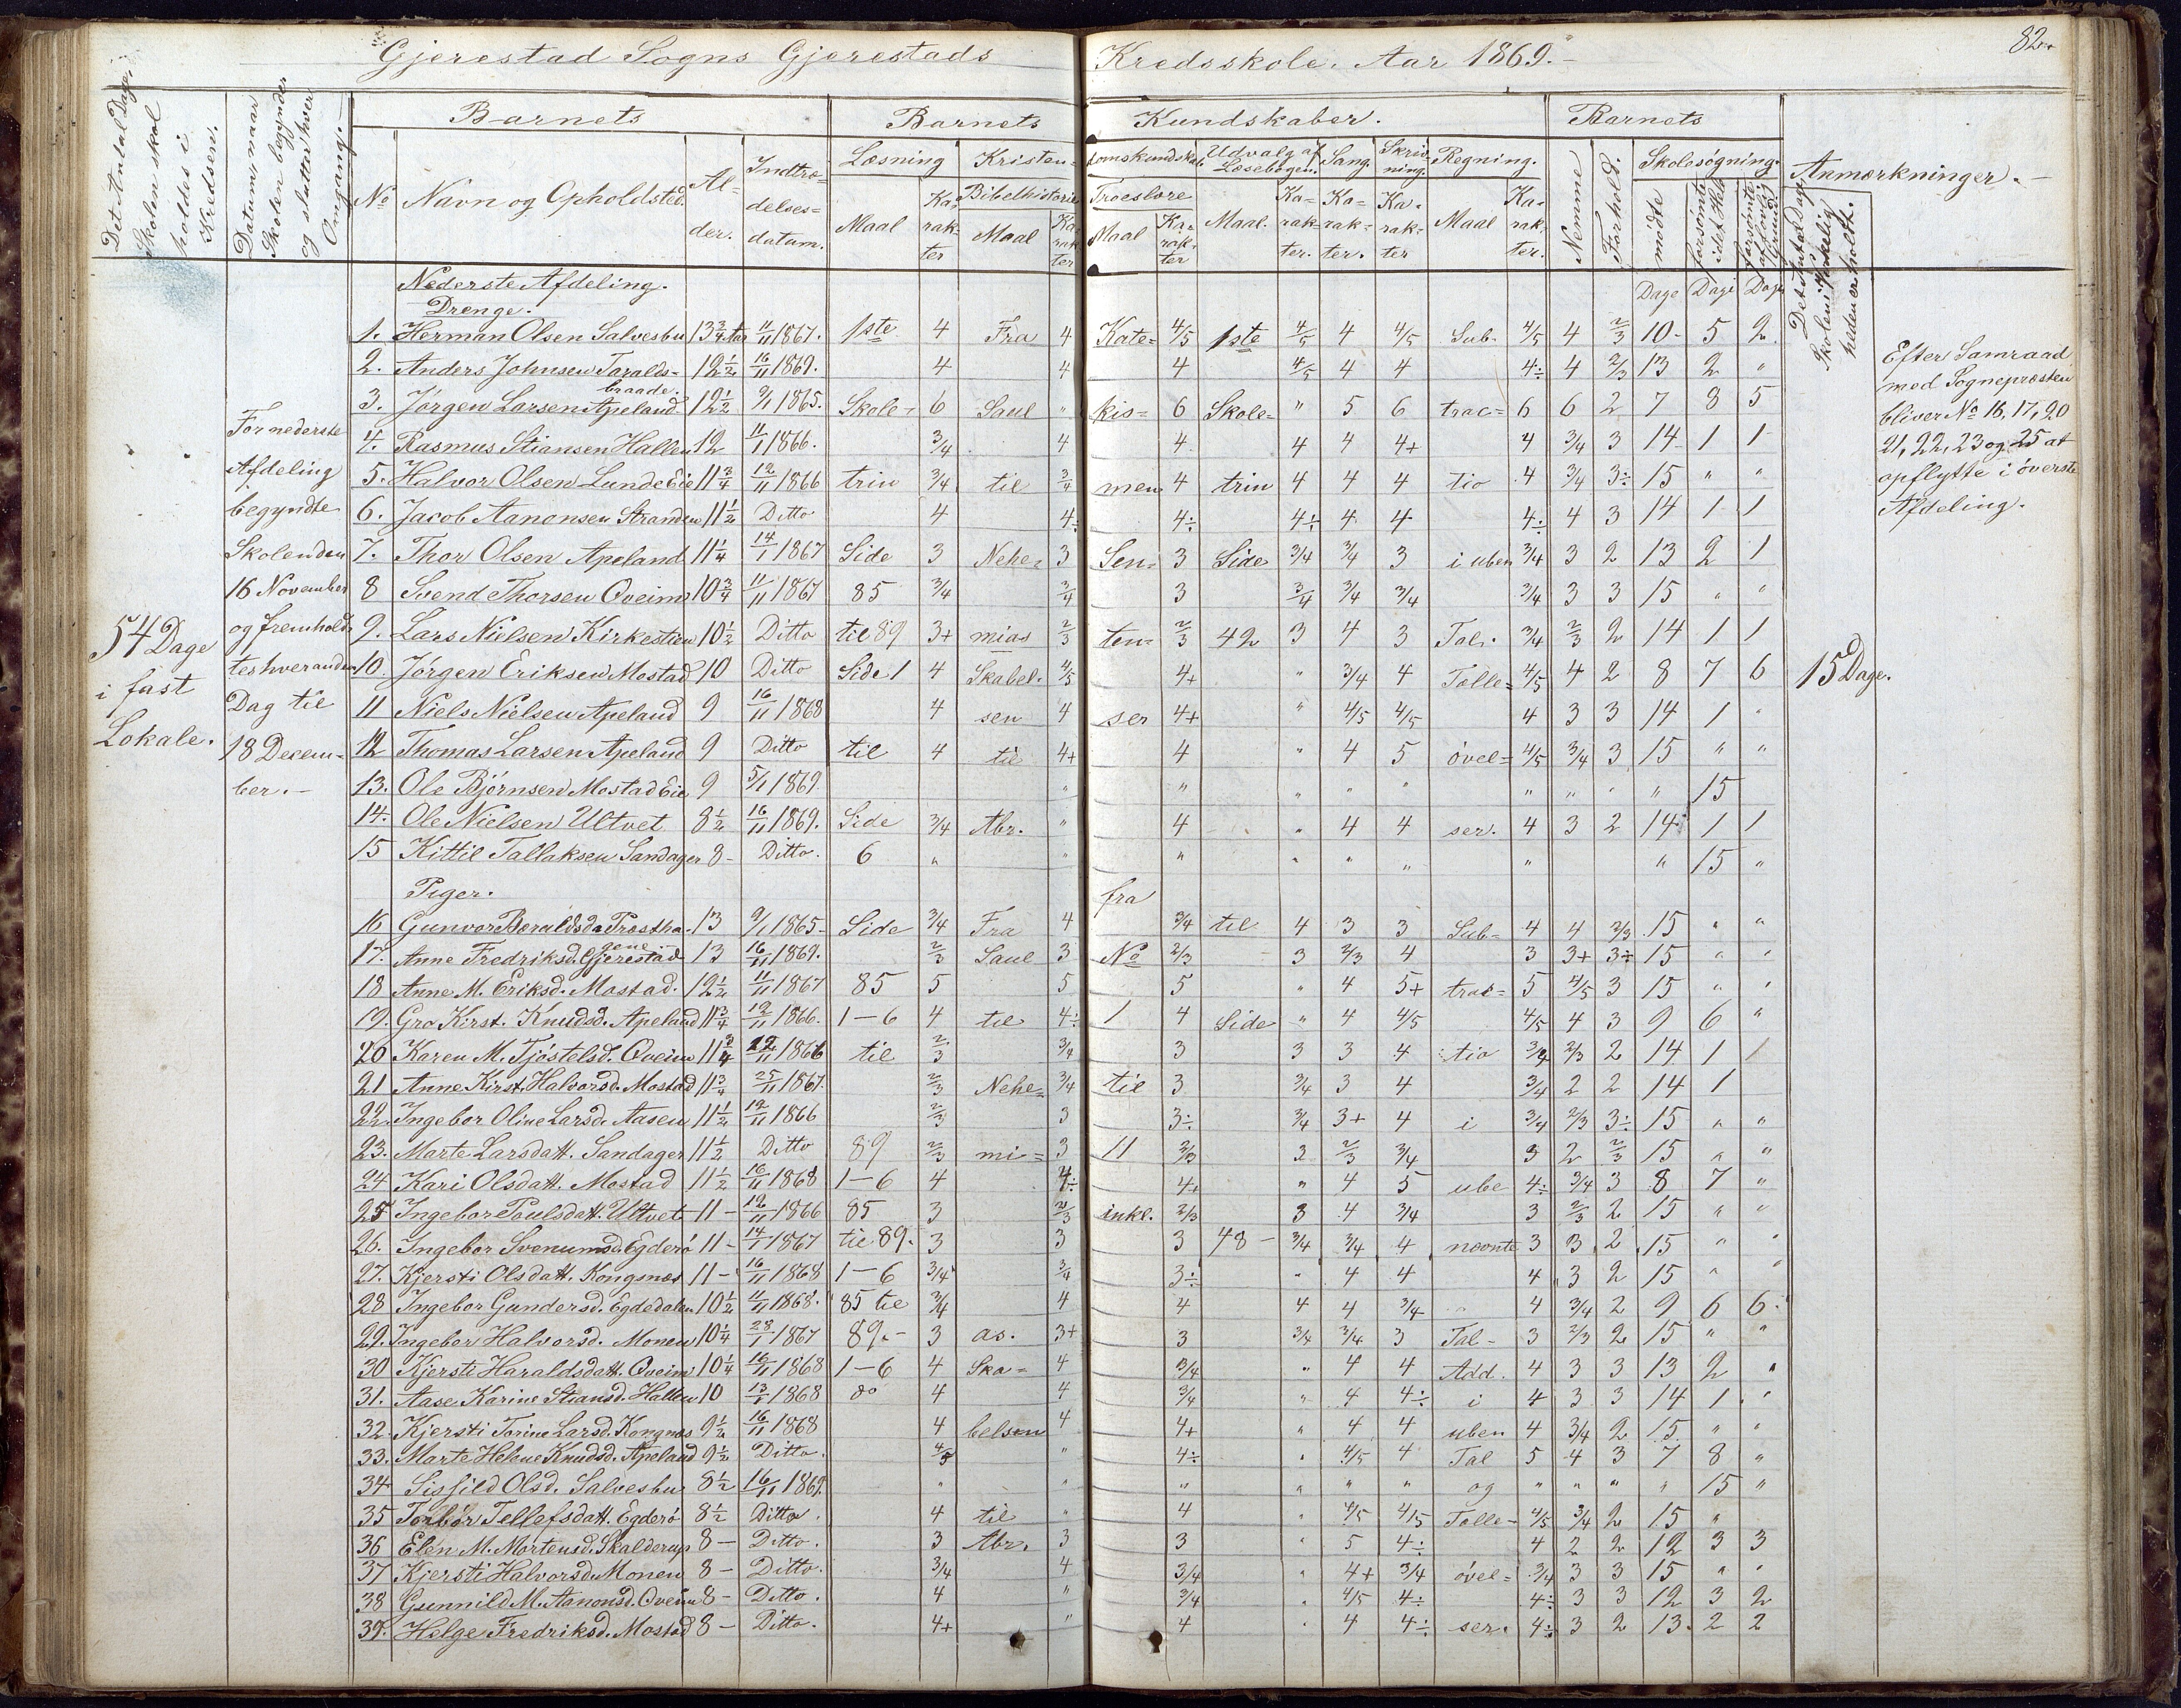 82
Gjerestad Sogns Gjerestads Kredsskole. Aar 1869.
Det Antal Dage, Skolen skal holdes i Kredsen.
Datum, naar Skolen begynder og slutter hver Omgang.
Barnets
Barnets Kundskaber.
Barnets
Anmærkninger.
No
Navn og Opholdsted.
Alder.
Indtrædelsesdatum.
Læsning
Maal
Karakter
Kristendomskundskab.
Bibelhistorie
Maal
Karakter
Troeslære
Maal
Karakter
Udvalg af Læsebogen.
Maal.
Karakter.
Sang.
Karakter.
Skrivning.
Karakter
Regning.
Maal
Karakter.
Nemme
Forhold.
Skolesøgning.
mødte
forsømte i det Hele
forsømte af lovlig Grund
Det Antal Dage Skolen i Virkelig heden er holdt.
Dage Dage Dage
54 Dage
i fast
Lokale.
For nederste
Afdeling
begyndte
Skolen den
16 November
og fremhold-
tes hveranden
Dag til
18 Decem-
ber.
Nederste Afdeling.
Drenge.
1. Herman Olsen Salvesbu 13 3/4 Aar 11/11 1867. 1ste 4 Fra 4 Kate= 4/5 1ste 4/5 4 4/5 Sub- 4/5 4 2/3 10 5 2
2. Anders Johnsen Taralds-braade. 12 1/2 16/11 1869. 4 4 4 4/5 4 4 4÷ 4 2/3 13 2 "
3. Jørgen Larsen Apeland 12 1/2 9/1 1865. Skole- 6 Saul " kis= 6 Skole= " 5 6 trac= 6 6 2 7 8 5
4. Rasmus Stiansen Hallen 12 11/1 1866. 3/4 4 4 4 4 4+ 4 3/4 3 14 1 1
5. Halvor Olsen Lunde Eie 11 3/4 12/11 1866 trin 3/4 til 3/4 men 4 trin 4 4 4 tio 4 3/4 3÷ 15 " "
6. Jacob Aanonsen Stranden 11 1/2 Ditto 4 4÷ 4÷ 4÷ 4 4 4÷ 4 3 14 1 1
7. Thor Olsen Apeland 11 1/4 14/1 1867 Side 3 Nehe= 3 Sen- 3 Side 3/4 3/4 3 i uben 3/4 3 2 13 2 1
8 Svend Thorsen Qveim 10 3/4 11/11 1867 85 3/4 3/4 3 3/4 3/4 3/4 3/4 3 3 15 " "
9. Lars Nielsen Kirkestien 10 1/2 Ditto til 89 3+ mias 2/3 ten- 2/3 42 3 4 3 Tal. 3/4 2/3 2 14 1 1
10. Jørgen Eriksen Mostad 10 Ditto Side 1 4 Skabel. 4/5 4+ " 3/4 4 Tælle= 4/5 4 2 8 7 6 15 Dage.
11 Niels Nielsen Apeland 9 16/11 1868 4 sen 4 ser 4+ " 4/5 4/5 4 3 3 14 1 "
12 Thomas Larsen Apeland 9 Ditto til 4 til 4+ 4 " 4 5 øvel= 4/5 3/4 3 15 " "
13. Ole Bjørnsen Mostad Eie 9 5/1 1869. " " " " " " " " " 15
14. Ole Nielsen Ultvet 8 1/2 16/11 1869. Side 3/4 Abr. " 4 " 4 4 ser. 4 3 2 14 1 1
15 Kittil Tallaksen Sandager 8 - Ditto. 6 " " " " " " " " 15 "
Piger.
fra
16 Gunvor Beraldsd. Trostha-gene 13 9/1 1865 Side 3/4 Fra 4 3/4 til 4 3 3 Sub= 4 4 2/3 15 " "
17. Anne Fredriksd. Gjerestad 13 16/11 1869. 2/3 Saul 3 No 2/3 3 2/3 4 3 3+ 3÷ 15 " "
18 Anne M. Eriksd. Mostad. 12 1/2 11/11 1867 85 5 5 5 " 4 5+ trac= 5 4/5 3 15 " "
19. Gro Kirst. Knudsd. Apeland 11 3/4 12/11 1866. 1-6 4 til 4÷ 1 4 Side " 4 4/5 4/5 4 3 9 6 "
20 Karen M. Tjøstelsd. Qveim 11 3/4 12/11 1866 til 2/3 3/4 3 3 3 4 tio 3/4 2/3 2 14 1 1
21 Anne Kirst. Halvorsd. Mostad 11 3/4 25/11 1867. 2/3 Nehe= 3/4 til 3 3/4 3 4 3/4 2 2 14 1
22. Ingebor Oline Larsd. Aasen 11 1/2 12/11 1866 2/3 3 3÷ 3/4 3+ 4 i 3/4 2/3 3÷ 15 " "
23. Marte Larsdatt. Sandager 11 1/2 Ditto 89 2/3 mi= 3 11 2/3 3 2/3 3/4 3 2 2/3 15 " "
24 Kari Olsdatt. Mostad 11 1/2 16/11 1868 1-6 4 4÷ 4+ " 4 5 ube 4÷ 3/4 3 8 7 "
25 Ingebor Poulsdatt. Ultvet 11 - 12/11 1866 85 3 2/3 inkl. 2/3 3 4 3/4 3 2/3 2 15 " "
26. Ingebor Svenumsd. Egderö 11 - 14/1 1867 til 89. 3 3 3 48 - 3/4 3/4 4 nævnte 3 3 2 15 " "
27. Kjersti Olsdatt. Kongsnæs 11 - 16/11 1868 1-6 3/4 3/4 3÷ " 4 4 4 3 2 15 " "
28 Ingebor Gundersd. Egdedalen 10 1/2 11/11 1868. 85 til 3/4 4 4 4 4 3/4 4 3/4 2 9 6 6
29. Ingebor Halvorsd. Monen 10 1/4 28/1 1867 89.- 3 as. 3+ 3 3/4 3/4 3 Tal- 3 2/3 2 15 " "
30 Kjersti Haraldsdatt. Qveim 10 1/4 16/11 1868 1-6 4 Ska= 4 3/4 " 4 4 Add. 4 3 3 13 2 "
31. Aase Karine Stiansd. Hallen 10 13/1 1868 do 4 4 3/4 " 4 4÷ i 4 3 3 14 1 "
32. Kjersti Torine Larsd. Kongnæs 9 1/2 16/11 1868 4 belsen 4 4+ " 4 4 uben 4 3/4 2 15 " "
33. Marte Helene Knudsd. Apeland 9 1/2 Ditto. 4/5 " 4÷ " 4/5 4 Tal 5 4 3 7 8 "
34 Sissild Olsd. Salvesbu 8 1/2 16/11 1869. " " " " " " og " " " " 15 "
35 Torbør Tellefsdatt. Egderö 8 1/2 Ditto. 4 til " 4 " 4/5 4/5 Tælle- 4/5 3/4 2 15 "
36 Elen M. Mortensd. Skalderup 8 - Ditto. 3 Abr. 3 3 " 5 4÷ 4 2 2 12 3 3
37 Kjersti Halvorsd. Monen 8 - Ditto. 3/4 4 3/4 " 4+ 3/4 øvel= 3/4 3 3 15 " "
38 Gunnild M. Aanonsd. Qveim 8 - Ditto. 4 " 3/4 " 4/5 4÷ 4÷ 3 3 12 3 2
39. Helge Fredriksd. Mostad 8 - Ditto. 4+ " 4 " 4 4÷ ser. 4÷ 3 2 13 2 2
Efter Samraad
med Sognepræsten
bliver No 16, 17, 20
21, 22, 23 og 25 at
opflytte i øverste
Afdeling.